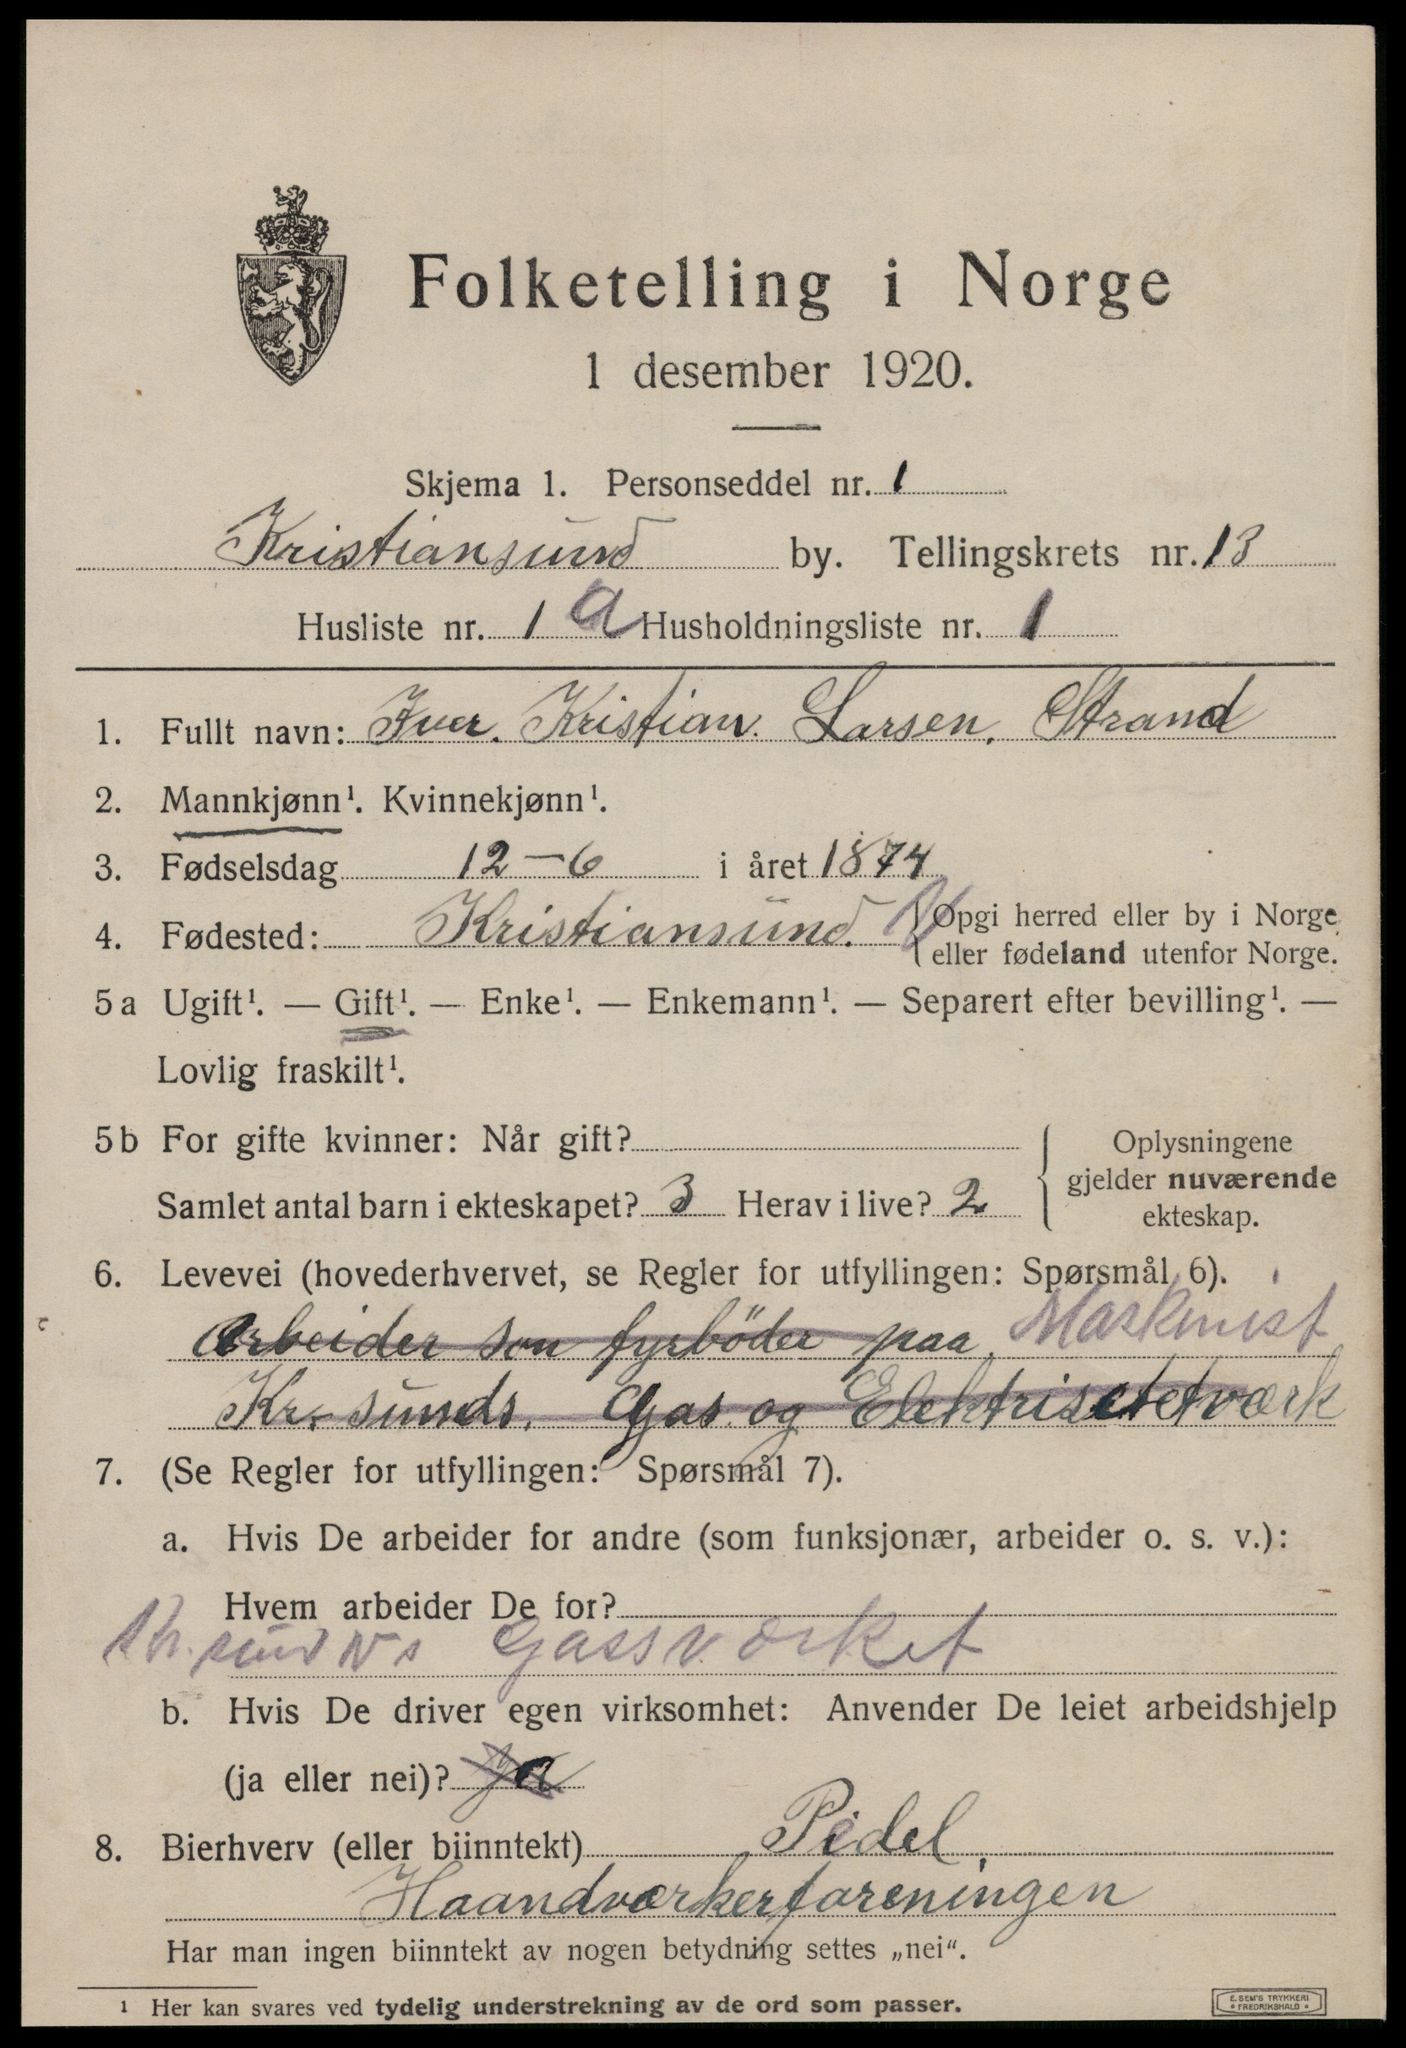 Folketelling i Norge
1 desember 1920.
Skjema 1. Personseddel nr. 1
Kristiansund by. Tellingskrets nr. 13
Husliste nr. 1 a Husholdningsliste nr. 1
1. Fullt navn: Iver. Kristian. Larsen. Strand
2. Mannkjønn¹. Kvinnekjønn¹.
3. Fødselsdag 12-6 i året 1874
4. Fødested: Kristiansund. {Opgi herred eller by i Norge eller fødeland utenfor Norge.
5a Ugift¹. — Gift¹. — Enke¹. — Enkemann¹. — Separert efter bevilling¹. —
Lovlig fraskilt¹.
5b For gifte kvinner: Når gift?
Samlet antal barn i ekteskapet? 3 Herav i live? 2
Oplysningene
gjelder nuværende
ekteskap.
6. Levevei (hovederhvervet, se Regler for utfyllingen: Spørsmål 6).
Arbeider som fyrböder paa Maskinist
Kr. sunds. Gas og Elektrisetetværk
7. (Se Regler for utfyllingen: Spørsmål 7).
a. Hvis De arbeider for andre (som funksjonær, arbeider o. s. v.):
Hvem arbeider De for?
Kr.sund Ns Gassværket
b. Hvis De driver egen virksomhet: Anvender De leiet arbeidshjelp
(ja eller nei)? ja
8. Bierhverv (eller biinntekt) Pedel,
Haandværkerforeningen
Har man ingen biinntekt av nogen betydning settes „nei“.
¹ Her kan svares ved tydelig understrekning av de ord som passer.
E. SEM'S TRYKKERI
FREDRIKSHALD